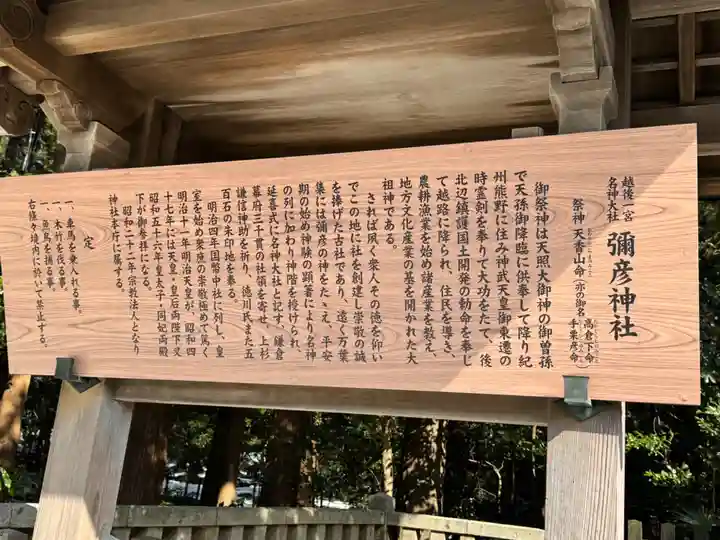 越後一宮
名神大社
彌彦神社
祭神 天香山命(亦の御名 高倉下命
手栗彦命)
御祭神は天照大御神の御曽孫
で天孫御降臨に供奉して降り紀
州熊野に住み神武天皇御東遷の
時霊剣を奉りて大功をたて、後
北辺鎮護国土開発の勅命を奉じ
て越路に降られ、住民を導き、
農耕漁業を始め諸産業を教え、
地方文化産業の基を開かれた大
祖神である。
されば夙く衆人その徳を仰い
でこの地に社を創建し崇敬の誠
を捧げた古社であり、遠く万葉
集には彌彦の神をたゝえ、平安
期の始め神験の顕著により名神
の列に加わり神階を授けられ、
延喜式に名神大社と記す。鎌倉
幕府三千貫の社領を寄せ、上杉
謙信神助を祈り、徳川氏また五
百石の朱印地を奉る。
明治四年国幣中社に列し、皇
室を始め衆庶の崇敬極めて篤く
明治十一年明治天皇が、昭和四
十七年には天皇・皇后両陛下又
昭和五十六年皇太子・同妃両殿
下が御参拝になる。
昭和二十二年宗教法人となり
神社本庁に属する。
定
一、車馬を乗入れる事。
一、木竹を伐る事。
一、魚鳥を捕る事。
右條々境内に於いて禁止する。